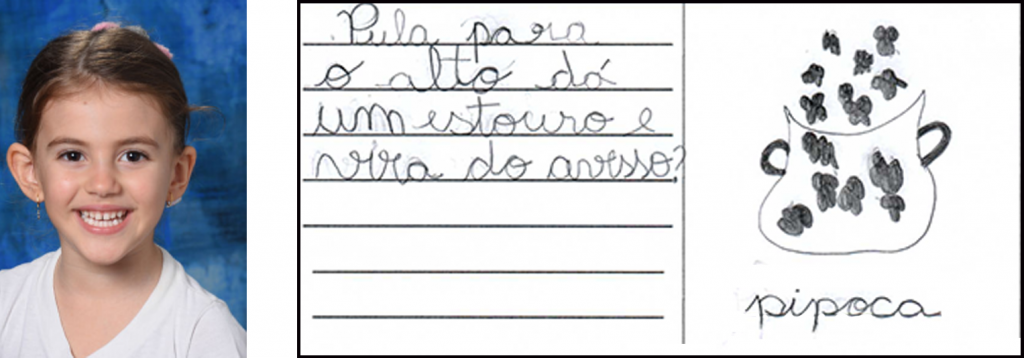 Pula para
o alto dá
um estouro e
vira do avesso?
pipoca